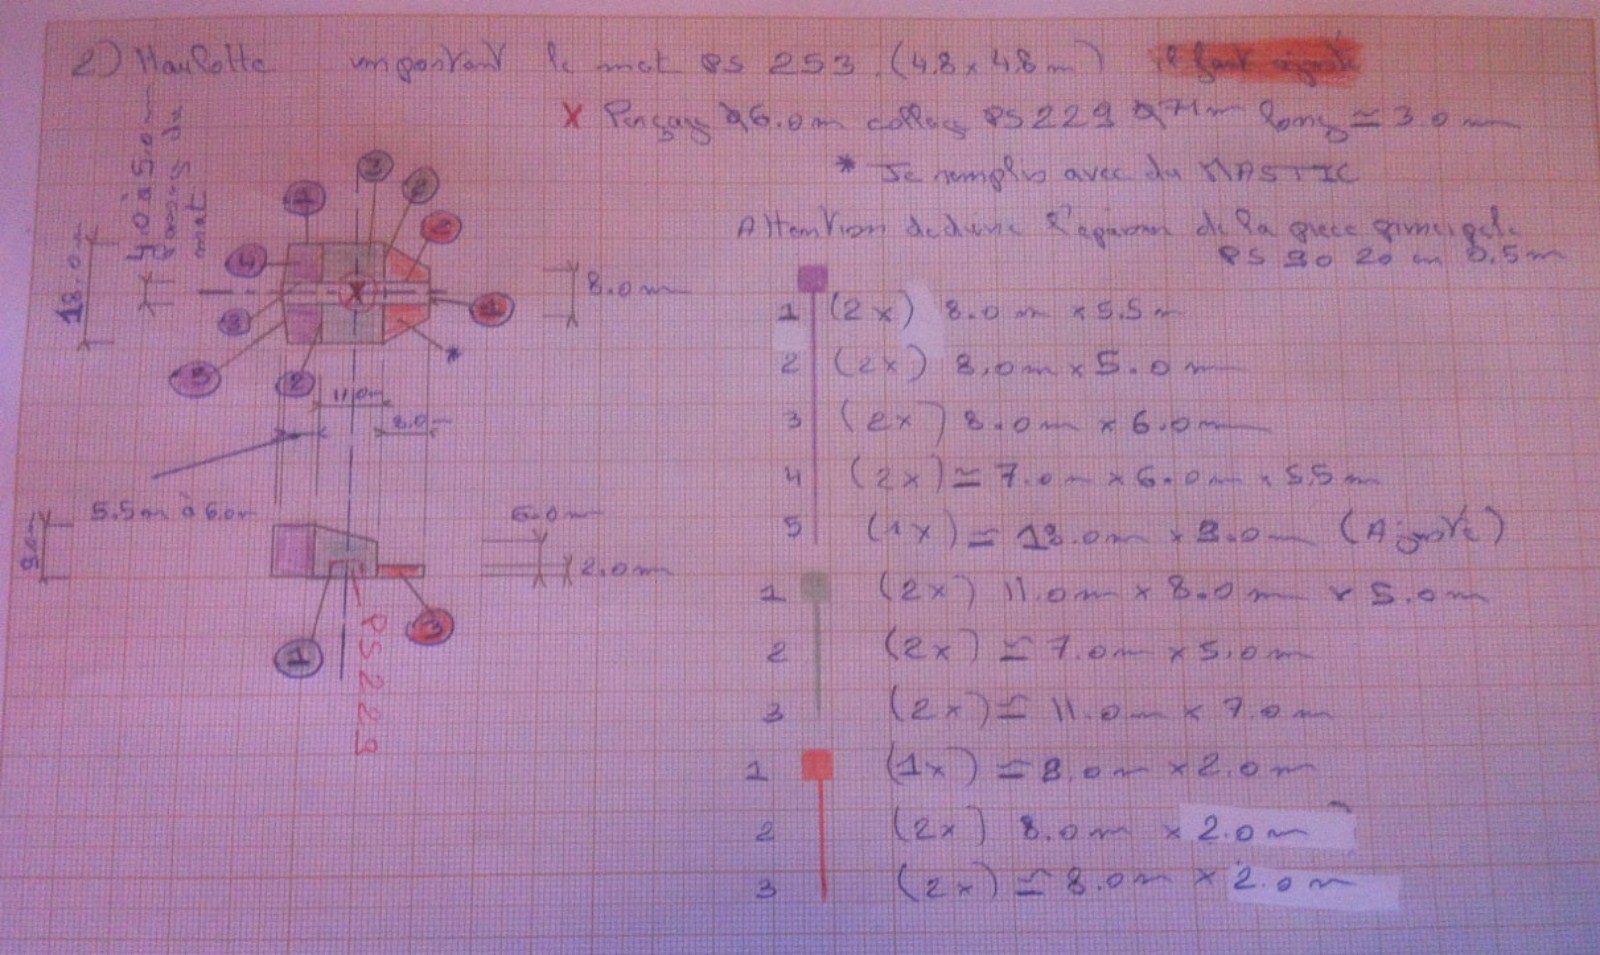 2) Haulotte important le mat PS 253 (4.8 x 4.8 m) il faut ajouté
X Perçage Ø 6.0 m collage PS 229 Ø 7.1 m long ≃ 3.0 m
* Je remplis avec du MASTIC
Attention déduire l'épaisseur de la pièce principale
PS 90 20 en 0.5 m
18.0 m
4.0 à 5.0 m
du
mat
3
2
1
2
4
8.0 m
1
3
*
3
2
11.0 m
8.0 m
5.5 m à 6.0 m
9.0 m
6.0 m
2.0 m
1
3
PS 229
1 (2x) 8.0 m x 5.5 m
2 (2x) 8.0 m x 5.0 m
3 (2x) 8.0 m x 6.0 m
4 (2x) ≃ 7.0 m x 6.0 m x 5.5 m
5 (1x) ≃ 18.0 m x 9.0 m (Ajusté)
1 (2x) 11.0 m x 8.0 m x 5.0 m
2 (2x) ≃ 7.0 m x 5.0 m
3 (2x) ≃ 11.0 m x 7.0 m
1 (1x) ≃ 8.0 m x 2.0 m
2 (2x) 8.0 m x 2.0 m
3 (2x) ≃ 8.0 m x 2.0 m